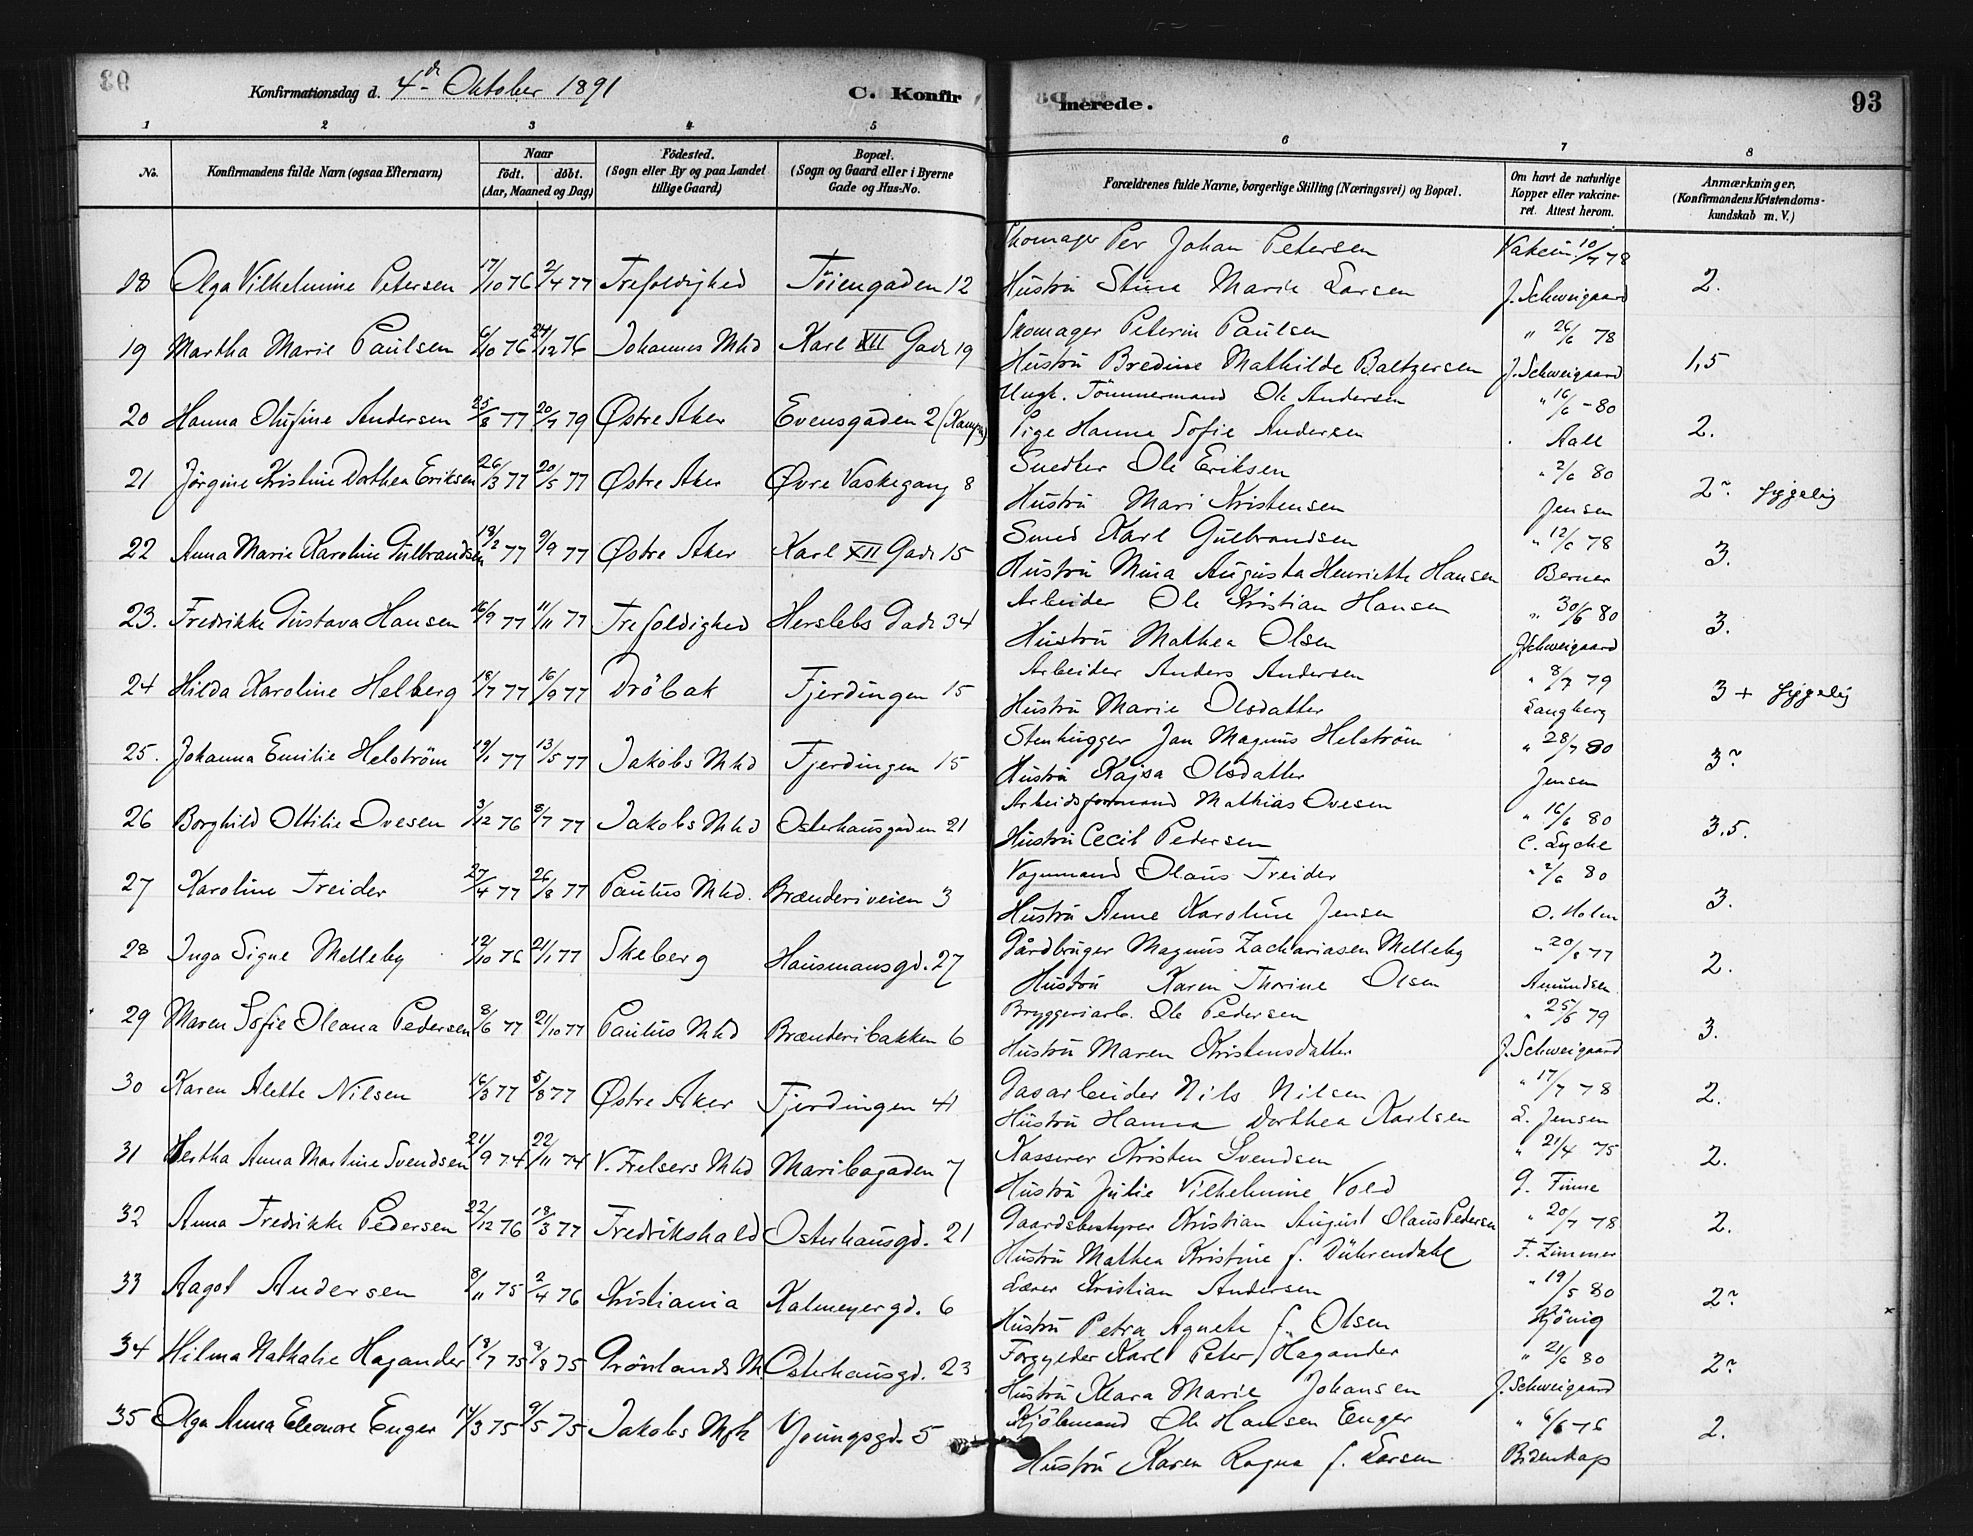 Konfirmationsdag d. 4de Oktober 1891
C. Konfirmerede.
93
1 2 3 4 5 6 7 8
No. Konfirmandens fulde Navn (ogsaa Efternavn) Naar født. døbt. (Aar, Maaned og Dag) Födested. (Sogn eller By og paa Landet tillige Gaard) Bopæl. (Sogn og Gaard eller i Byerne Gade og Hus-No. Forældrenes fulde Navne, borgerlige Stilling (Næringsvei) og Bopæl. Om havt de naturlige Kopper eller vakcineret. Attest herom. Anmærkninger, (Konfirmandens Kristendomskundskab m. V.)
18 Olga Vilhelmine Petersen 17/10 76 2/4 77 Trefoldighed Töiengaden 12 Skomager Per Johan Petersen Vakcin. 10/7 78
Hustru Stina Marie Larsen J. Schweigaard 2.
19 Martha Marie Paulsen 6/10 76 24/12 76 Johannes Mhd Karl XII Gade 19 Skomager Peterin Paulsen " 26/6 78
Hustru Bredine Mathilde Baltzersen J. Schweigaard 1,5
20 Hanna Olufine Andersen 25/8 77 20/7 79 Østre Aker Evensgaden 2 (Kampen) Ungk. Tömmermand Ole Andersen " 16/6 - 80
Pige Hanna Sofie Andersen Aall 2.
21 Jörgine Kristine Dorthea Eriksen 26/3 77 20/5 77 Østre Aker Øvre Vaskegang 8 Snedker Ole Eriksen " 2/6 80
Hustru Mari Kristensen Jensen 2~. Sygelig
22 Anna Marie Karoline Gulbrandsen 18/2 77 9/9 77 Østre Aker Karl XII Gade 15 Smed Karl Gulbrandsen " 12/6 78
Hustru Mina Augusta Henriette Hansen Berner 3.
23. Fredrikke Gustava Hansen 16/9 77 11/11 77 Trefoldighed Herslebs Gade 34 Arbeider Ole Kristian Hansen " 30/6 80
Hustru Mathea Olsen J. Schweigaard 3.
24 Hilda Karoline Helberg 18/7 77 16/9 77 Dröbak Fjerdingen 15 Arbeider Anders Andersen " 8/7 79
Hustru Marie Olsdatter Langberg 3 + Sygelig
25. Johanna Emilie Helström 19/1 77 13/5 77 Jakobs Mhd Fjerdingen 15 Stenhugger Jan Magnus Helström " 28/7 80
Hustru Kajsa Olsdatter Jensen 3~
26 Borghild Ottilie Ovesen 3/12 76 8/7 77 Jakobs Mhd Osterhausgaden 21 Arbeidsformand Mathias Ovesen " 16/6 80
Hustru Cecil Pedersen C. Lyche 3.5.
27 Karoline Treider 27/4 77 26/8 77 Paulus Mhd. Brænderiveien 3 Vognmand Olaus Treider " 2/6 80
Hustru Anne Karoline Jensen O. Holm 3.
28 Inga Signe Melleby 12/10 76 21/1 77 Skeberg Hausmansgd. 27 Gårdbruger Magnus Zachariasen Melleby " 20/8 77
Hustru Karen Thorine Olsen Amundsen 2.
29 Maren Sofie Oleana Pedersen 8/6 77 21/10 77 Paulus Mhd Brænderibakken 6 Bryggeriarb. Ole Pedersen " 25/6 79
Hustru Maren Kristensdatter J. Schweigaard 3.
30 Karen Alette Nilsen 16/3 77 5/8 77 Østre Aker Fjerdingen 41 Gasarbeider Nils Nilsen " 17/7 78
Hustru Hanna Dorthea Karlsen L. Jensen 2.
31 Hertha Anna Martine Svendsen 21/9 74 22/11 74 V. Frelsers Mhd Maribogaden 7 Kasserer Kristen Svendsen " 21/4 75
Hustru Julie Vilhelmine Vold G. Finne 2.
32 Anna Fredrikke Pedersen 22/12 76 18/3 77 Fredrikshald Osterhausgd. 21 Gaardsbestyrer Kristian August Olaus Pedersen " 20/7 78
Hustru Mathea Kristine f. Dührendahl F. Zimmer 2.
33 Aagot Andersen 8/11 75 2/4 76 Kristiania Kalmeyergd. 6 Lærer Kristian Andersen " 19/5 80
Hustru Petra Agnete f. Olsen König 2~
34 Hilma Nathalie Hagander 18/7 75 9/8 75 Grönlands M Osterhausgd. 23 Forgylder Karl Peter Hagander " 21/6 80
Hustru Klara Marie Johansen J. Schweigaard 2~
35 Olga Anna Eleonore Enger 14/3 75 9/5 75 Jakobs Mh Youngsgd. 5 Kjöbmand Ole Hansen Enger " 6/6 76
Hustru Karen Ragna f. Larsen Bidenkap 2.